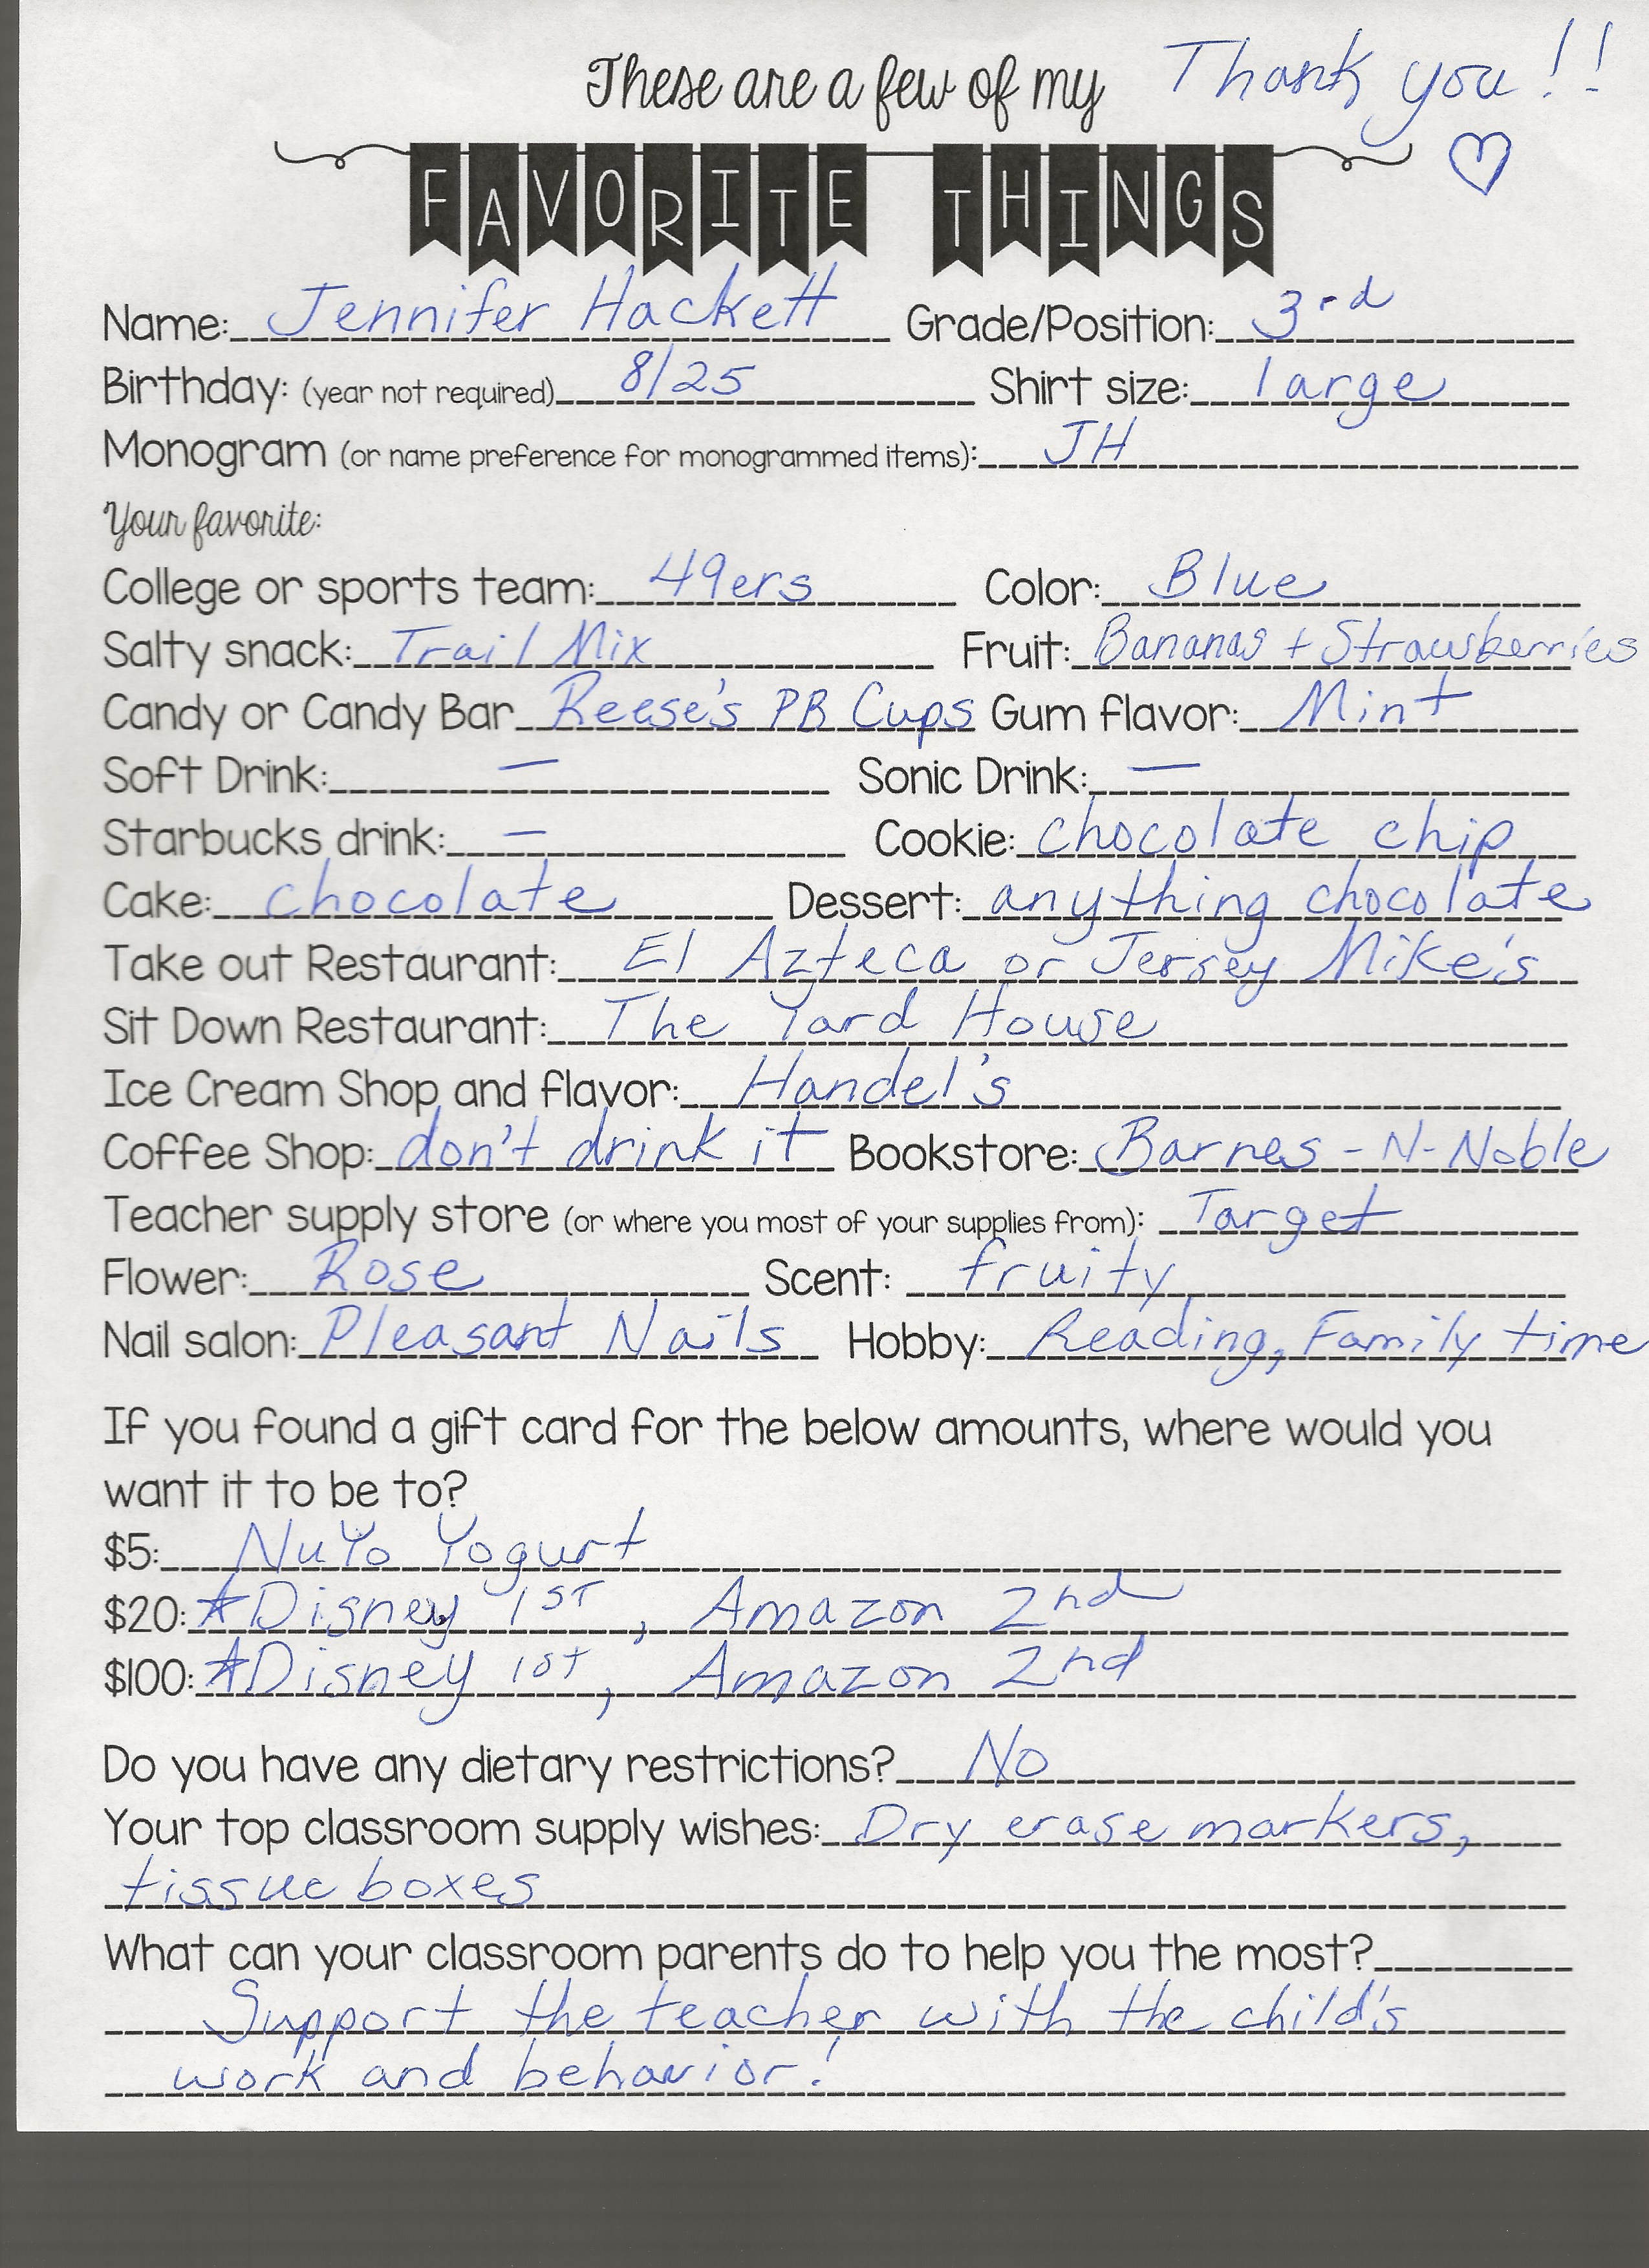 These are a few of my Thank you!! ♡
FAVORITE THINGS
Name: Jennifer Hackett Grade/Position: 3rd
Birthday: (year not required) 8/25 Shirt size: large
Monogram (or name preference for monogrammed items): JH
Your favorite:
College or sports team: 49ers Color: Blue
Salty snack: Trail Mix Fruit: Bananas + Strawberries
Candy or Candy Bar Reese's PB Cups Gum flavor: Mint
Soft Drink: — Sonic Drink: —
Starbucks drink: — Cookie: chocolate chip
Cake: chocolate Dessert: anything chocolate
Take out Restaurant: El Azteca or Jersey Mike's
Sit Down Restaurant: The Yard House
Ice Cream Shop and flavor: Handel's
Coffee Shop: don't drink it Bookstore: Barnes-N-Noble
Teacher supply store (or where you most of your supplies from): Target
Flower: Rose Scent: fruity
Nail salon: Pleasant Nails Hobby: Reading, Family time
If you found a gift card for the below amounts, where would you
want it to be to?
$5: NuYo Yogurt
$20: ★Disney 1ST, Amazon 2nd
$100: ★Disney 1st, Amazon 2nd
Do you have any dietary restrictions? No
Your top classroom supply wishes: Dry erase markers,
tissue boxes
What can your classroom parents do to help you the most?
Support the teacher with the child's
work and behavior!